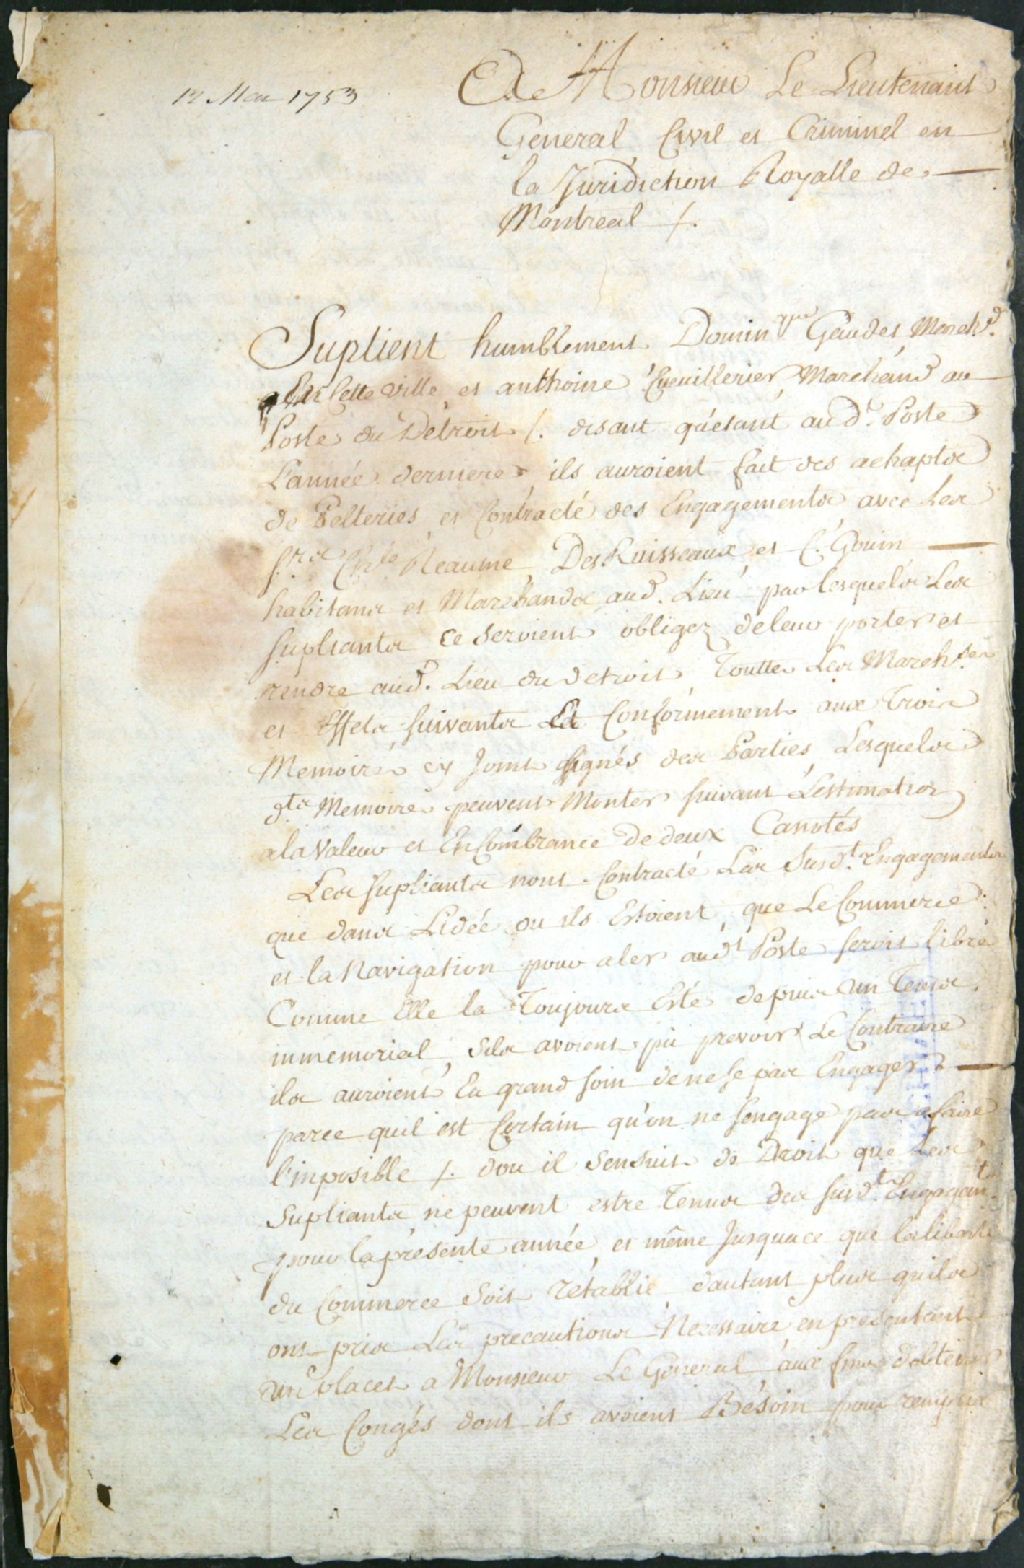 12 Mai 1753
A Monsieur Le Lieutenant
General Civil et Criminel en
la Juridiction Royalle de
Montreal /.
Suplient humblement Domin que Gaudet March.d
En Cette ville et anthoine Cueuillerier Marchand au
Poste du Détroit /. disant qu'étant aud. Poste
L'année derniere ils auroient fait des achapts
de Pelteries et Contracté des Engagements avec les
S.rs Ch.le Reaume, DesRuisseaux et C. Gouin
habitans et Marchands aud. Lieu par lesquels Les
supliants ce seroient obligez deleur porter et
rendre aud. Lieu du detroit Toutte Les March.ses
et Effets suivants Et Conformement aux Trois
Memoires cy Joint signés des Parties, Lesquels
Memoire peuvent Monter suivant L'estimation
ala Valeur et Encombrance de deux Canotés
Les supliants nont Contracté Les Susd.t Engagements
que dans Lidée ou ils Estoient que Le Commerce
et la Navigation pour aler aud.t Poste seroit libre
Comme Elle la Toujours Esté depuis un Temps
inmemorial, sils avoient pû prevoir Le Contraire
ils auroient Eu grand soin de ne se pas Engager
parce quil est Certain qu'on ne sengage pas a faire
l'inposible /. dou il sensuit de Droit que Les
Suplianta ne peuvent estre Tenus des susd.t Engagem.t
pour la présente année et même Jusquace que la liberté
du Commerce soit rétablie d'autant plus quils
ont pris Les precautions Necessaire en presentant
un placet a Monsieur Le General aux fins d'obtenir
Les Congés dont ils avoient Bésoin pour remplir